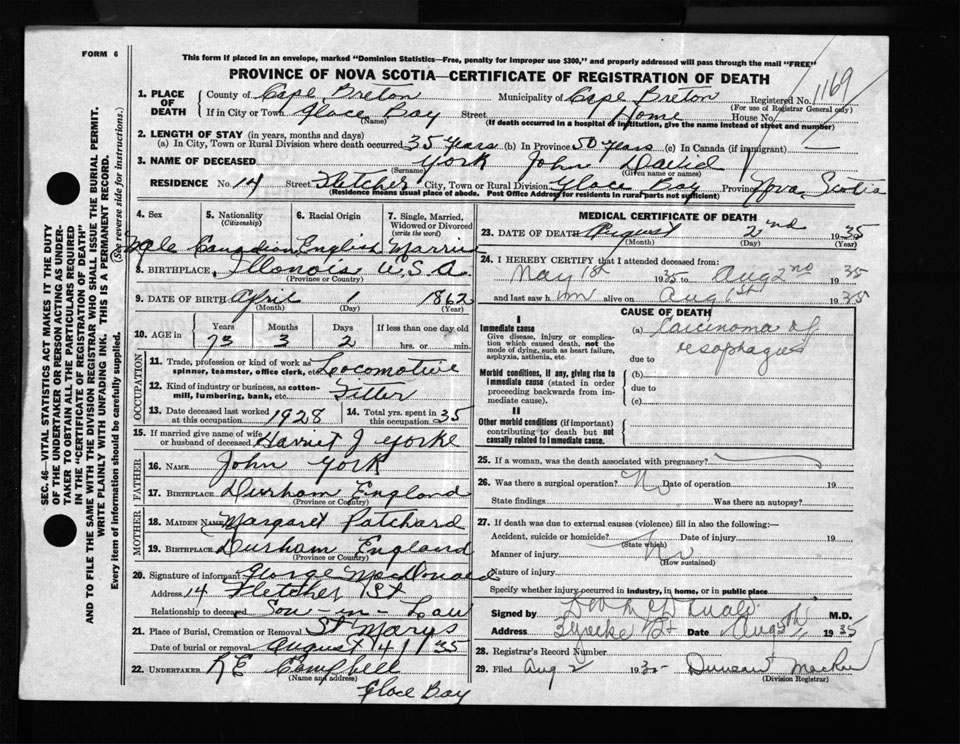 FORM 6
This form if placed in an envelope, marked "Dominion Statistics—Free, penalty for improper use $300," and properly addressed will pass through the mail "FREE"
PROVINCE OF NOVA SCOTIA—CERTIFICATE OF REGISTRATION OF DEATH
1169
SEC. 46—VITAL STATISTICS ACT MAKES IT THE DUTY
OF THE UNDERTAKER OR PERSON ACTING AS UNDER-
TAKER TO OBTAIN ALL THE PARTICULARS REQUIRED
IN THE "CERTIFICATE OF REGISTRATION OF DEATH"
AND TO FILE THE SAME WITH THE DIVISION REGISTRAR WHO SHALL ISSUE THE BURIAL PERMIT.
WRITE PLAINLY WITH UNFADING INK. THIS IS A PERMANENT RECORD.
Every item of information should be carefully supplied. (See reverse side for instructions.)
1. PLACE OF DEATH
County of Cape Breton Municipality of Cape Breton Registered No.
(For use of Registrar General only)
If in City or Town Glace Bay Street Home House No.
(Name) (If death occurred in a hospital or institution, give the name instead of street and number)
2. LENGTH OF STAY (in years, months and days)
(a) In City, Town or Rural Division where death occurred 35 years (b) In Province 50 years (c) In Canada (if immigrant) —
3. NAME OF DECEASED York John David
(Surname) (Given name or names)
RESIDENCE No. 14 Street Fletcher City, Town or Rural Division Glace Bay Province Nova Scotia
(Residence means usual place of abode. Post Office Address for residents in rural parts not sufficient)
4. Sex 5. Nationality (Citizenship) 6. Racial Origin 7. Single, Married, Widowed or Divorced (write the word)
Male Canadian English Married
8. BIRTHPLACE Illonois U.S.A.
(Province or Country)
9. DATE OF BIRTH April 1 1862
(Month) (Day) (Year)
10. AGE in Years Months Days If less than one day old
73 3 2 hrs. or min.
OCCUPATION
11. Trade, profession or kind of work as spinner, teamster, office clerk, etc. Locomotive
12. Kind of industry or business, as cotton-mill, lumbering, bank, etc. Fitter
13. Date deceased last worked at this occupation 1928 14. Total yrs. spent in this occupation 35
15. If married give name of wife or husband of deceased Harriet J Yorke
FATHER
16. NAME John York
17. BIRTHPLACE Durham England
(Province or Country)
MOTHER
18. MAIDEN NAME Margaret Patchard
19. BIRTHPLACE Durham England
(Province or Country)
20. Signature of informant George MacDonald
Address 14 Fletcher St
Relationship to deceased Son-in-Law
21. Place of Burial, Cremation or Removal St Marys
Date of burial or removal August 4 1935
22. UNDERTAKER R E Campbell
(Name and address)
Glace Bay
MEDICAL CERTIFICATE OF DEATH
23. DATE OF DEATH August 2nd 1935
(Month) (Day) (Year)
24. I HEREBY CERTIFY that I attended deceased from:
May 1st 1935 to Aug 2nd 1935
and last saw him alive on Aug 1st 1935
CAUSE OF DEATH
I
Immediate cause
Give disease, injury or complication which caused death, not the mode of dying, such as heart failure, asphyxia, asthenia, etc.
(a) Carcinoma of
esophagus
due to
Morbid conditions, if any, giving rise to immediate cause (stated in order proceeding backwards from immediate cause).
(b)
due to
(c)
II
Other morbid conditions (if important) contributing to death but not causally related to immediate cause.
25. If a woman, was the death associated with pregnancy?
26. Was there a surgical operation? No Date of operation 19
State findings Was there an autopsy?
27. If death was due to external causes (violence) fill in also the following:—
Accident, suicide or homicide? Date of injury 19
(State which)
Manner of injury No
(How sustained)
Nature of injury
Specify whether injury occurred in industry, in home, or in public place
Signed by M.D.
Address Date Aug 5th 1935
28. Registrar's Record Number
29. Filed Aug 2 1935 Duncan
(Division Registrar)